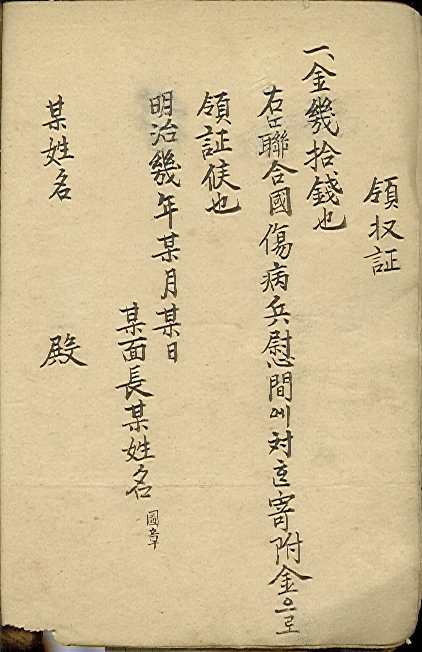 領収証
一、金幾拾錢也
右는聯合國傷病兵慰間에対호寄附金으로
領証候也
明治幾年某月某日
某面長某姓名 圖章
某姓名 殿